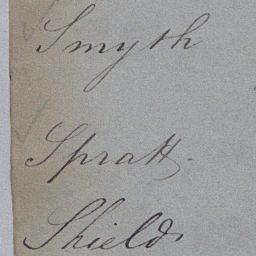 Smyth
Spratt.
Shields